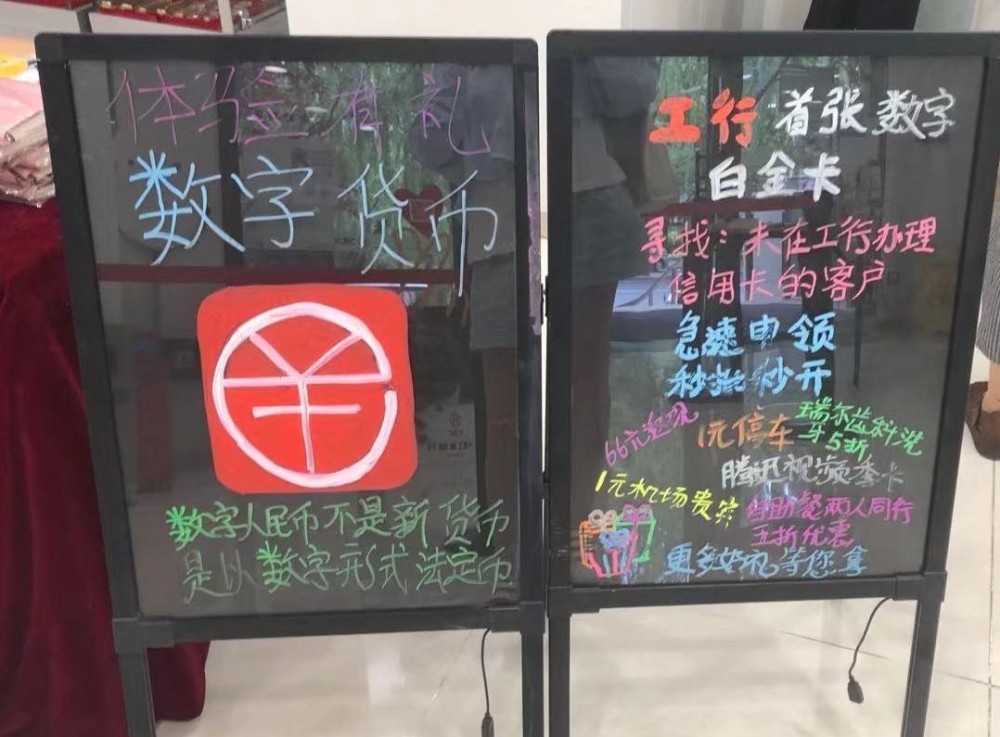 体验有礼
数字货币
数字人民币不是新货币
是以数字形式法定币
工行首张数字
白金卡
寻找：未在工行办理
信用卡的客户
急速申领
秒批秒开
66元起飞
1元停车
瑞尔齿科洗
牙5折
腾讯视频季卡
1元机场贵宾
自助餐两人同行
五折优惠
更多好礼等您拿